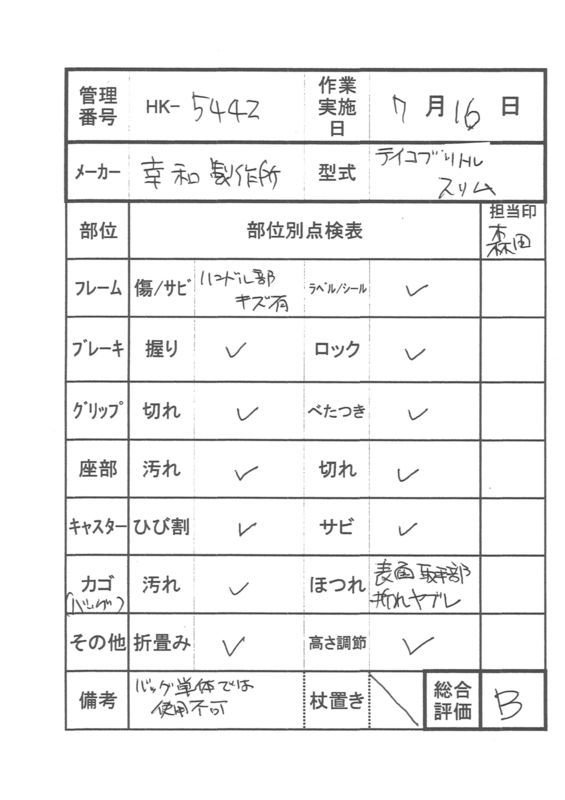 管理番号 HK-5442 作業実施日 7月16日
メーカー 幸和製作所 型式 テイコブリトルスリム
部位 部位別点検表 担当印 森田
フレーム 傷/サビ ハンドル部キズ有 ラベル/シール ✓
ブレーキ 握り ✓ ロック ✓
グリップ 切れ ✓ べたつき ✓
座部 汚れ ✓ 切れ ✓
キャスター ひび割 ✓ サビ ✓
カゴ(バッグ) 汚れ ✓ ほつれ 表面取手部 ヤブレ
その他 折畳み ✓ 高さ調節 ✓
備考 バッグ単体では使用不可 杖置き \ 総合評価 B